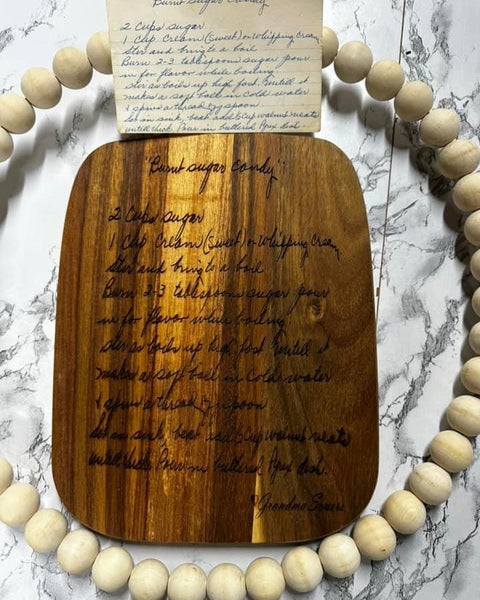 Burnt sugar Candy
2 Cups sugar
1 Cup Cream (sweet) or Whipping Cream
Stir and bring to a boil
Burn 2-3 tablespoons sugar pour
in for flavor while boiling
stir as boils up high fast. Untill it
makes a soft ball in cold water
& spins a thread spoon
Set in sink, beat add 6 Cup walnut meats
untill thick. Pour in buttered Pyrex dish.
"Burnt sugar candy"
2 Cups sugar
1 Cup Cream (sweet) or Whipping Cream
Stir and bring to a boil
Burn 2-3 tablespoons sugar pour
in for flavor while boiling
stir as boils up high fast. Untill it
makes a soft ball in cold water
& spins a thread spoon
Set in sink, beat add 6 Cup walnut meats
untill thick. Pour in buttered Pyrex dish.
♥Grandma